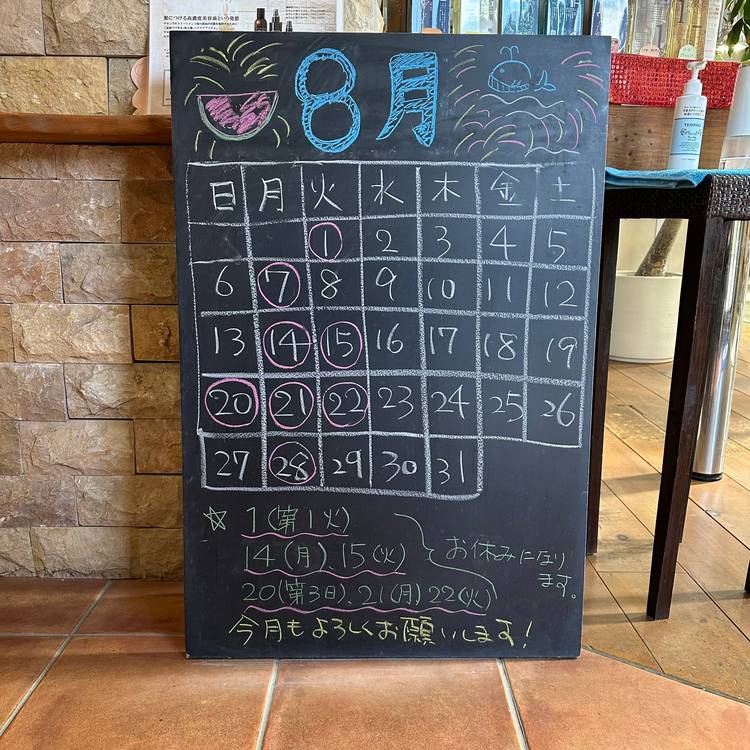 髪につける高濃度美容液という発想
8月
日 月 火 水 木 金 土
1 2 3 4 5
6 7 8 9 10 11 12
13 14 15 16 17 18 19
20 21 22 23 24 25 26
27 28 29 30 31
☆ 1(第1火)
14(月)、15(火)
20(第3日)、21(月)22(火)
お休みになります。
今月もよろしくお願いします!